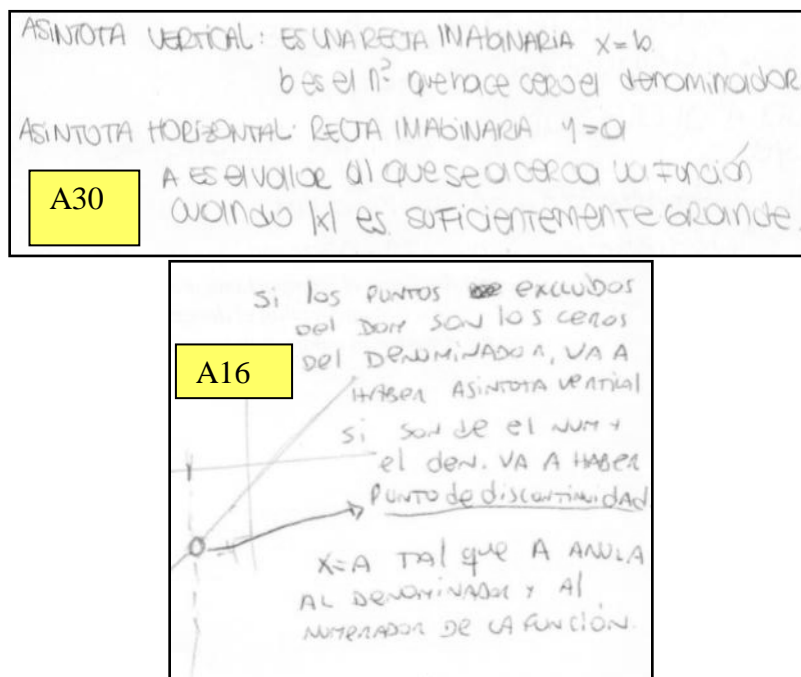 ASINTOTA VERTICAL: ES UNA RECTA IMAGINARIA x=b
b es el nº que hace cero el denominador
ASINTOTA HORIZONTAL: RECTA IMAGINARIA y=a
A30
A ES el valor al que se acerca la función
cuando |x| es suficientemente grande.
Si los PUNTOS excluidos
del DOM SON los ceros
del DENOMINADOR, VA A
A16
HABER ASINTOTA vertical
Si son de el NUM y
el den. VA A HABER
PUNTO de discontinuidad
X=A TAl que A ANULA
AL DENOMINADOR Y Al
NUMERADOR DE LA FUNCIÓN.